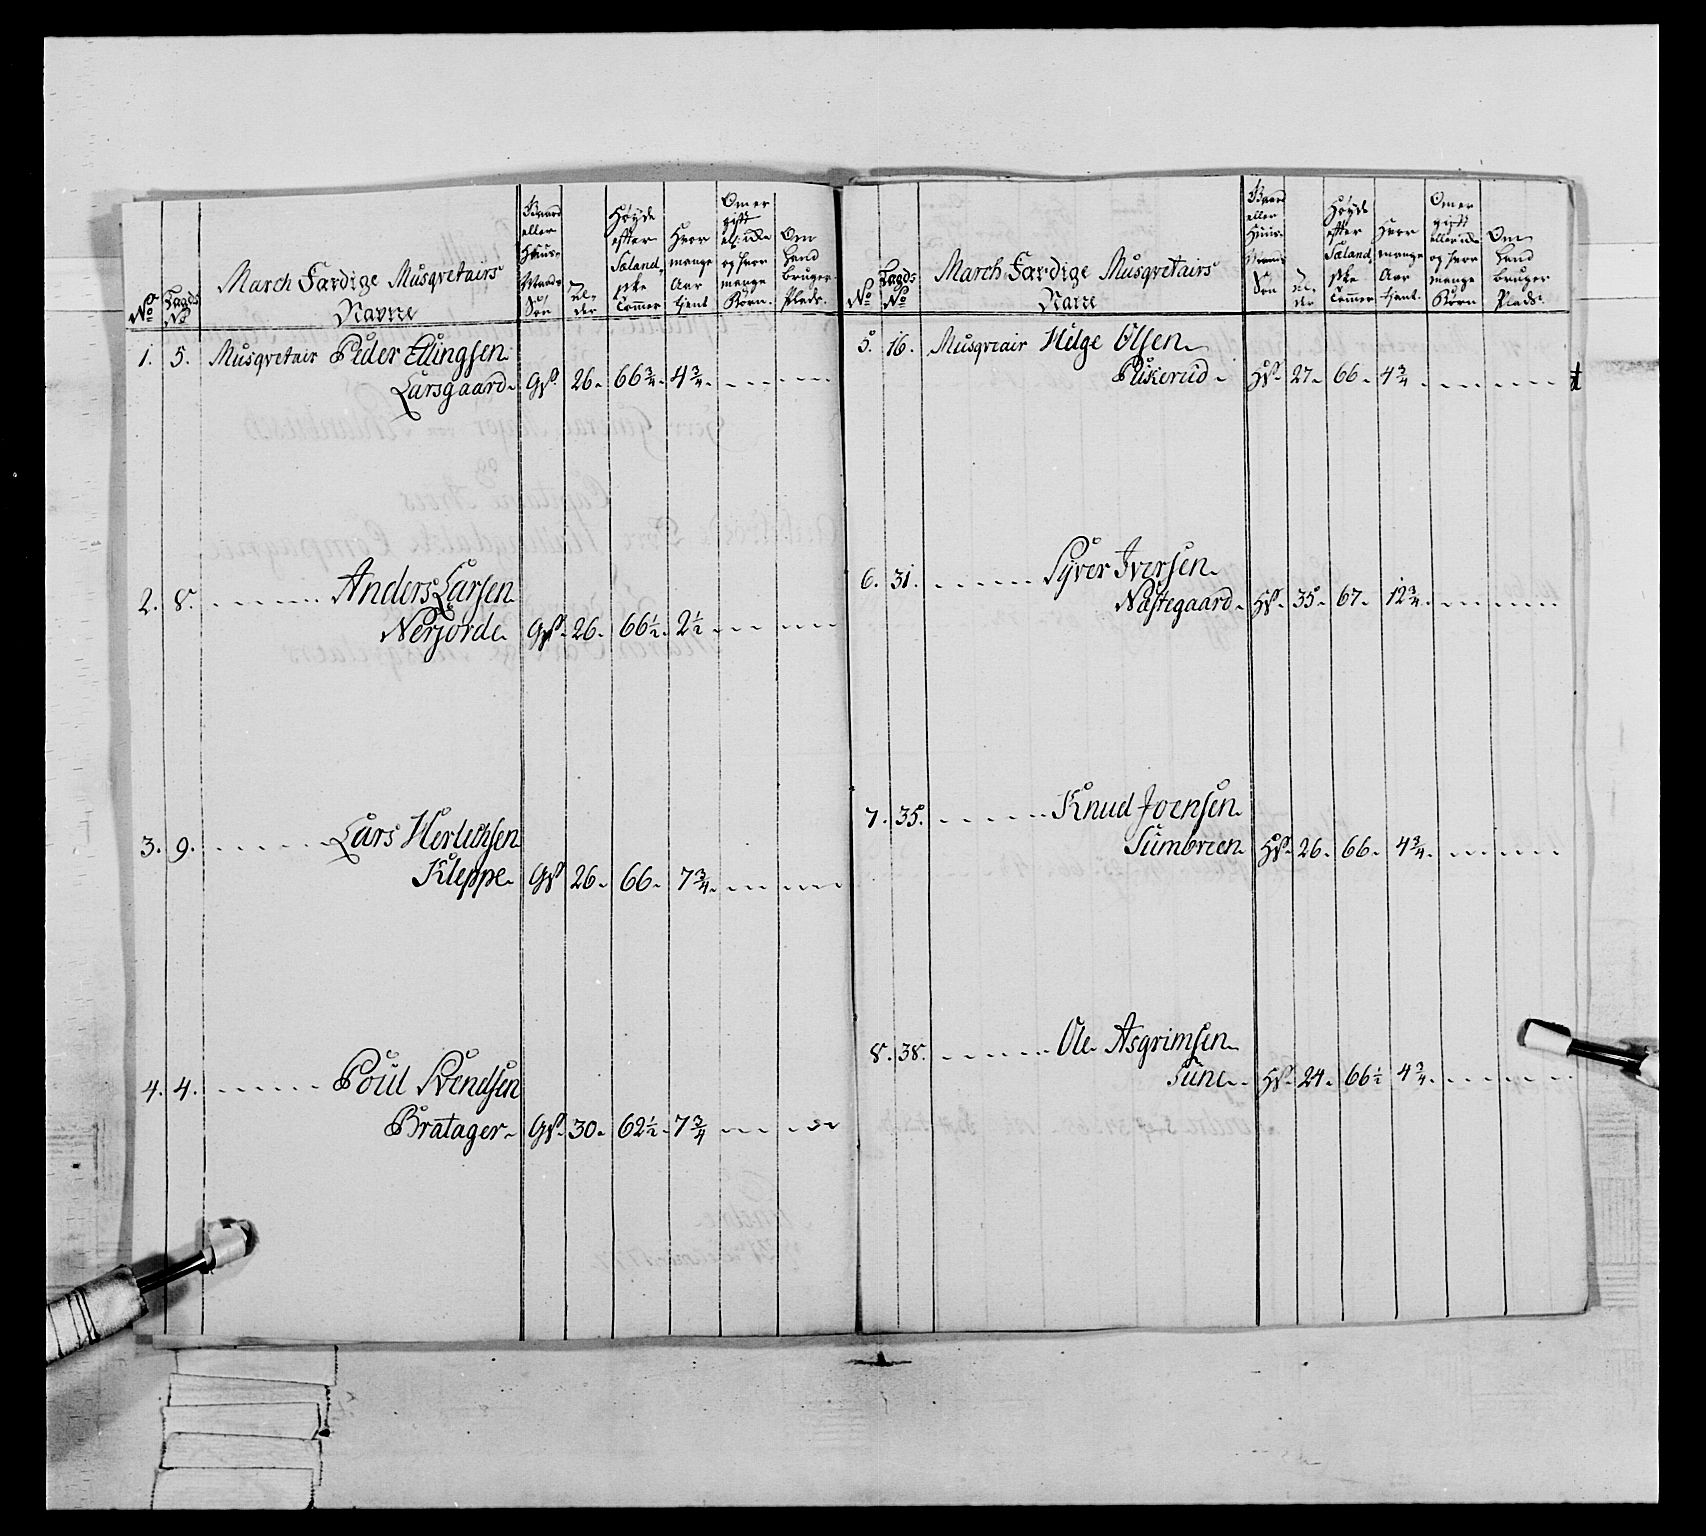 No
Lægds No
March Færdige Musqvetairs
Navne
Gaard
eller
Huus-
Mands
Søn
Al-
der
Høyde
efter
Sæland,
ske
Tommer
Hvor
mange
Aar
tjent
Om er
gift
ell: ikke
og hvor
mange
Børn.
Om
Hand
bruger
Plads.
1. 5. Musqvetair Peder Ellingsen
Larsgaard. GS. 26. 66 3/4. 4 3/4.
2. 8. Anders Larsen
Nerjorde. GS. 26. 66 1/2. 2 1/2
3. 9. Lars Herlechsen
Kleppe. GS 26. 66. 7 3/4.
4. 4. Poül Svendsen
Bratager. GS. 30. 62 1/2. 7 3/4
No
Lægds No
March Færdige Musqvetairs
Navne
Gaard
eller
Huus-
Mands
Søn
Al-
der
Høyde
efter
Sæland,
ske
Tommer
Hvor
mange
Aar
tjent.
Om er
gift
eller ikke
og hvor
mange
Børn
Om
Hand
bruger
Plads.
5. 16. Musqveair Helge Olsen
Püskerüd. HS. 27. 66. 4 3/4
6. 31. Syver Iversen
Nastegaard. HS. 35. 67. 12 3/4.
7. 35. Knud Joensen
Sümbreen. HS. 26. 66. 4 3/4.
8. 38. Ole Asgrimsen
Tüne. HS. 24. 66 1/2 4 3/4.